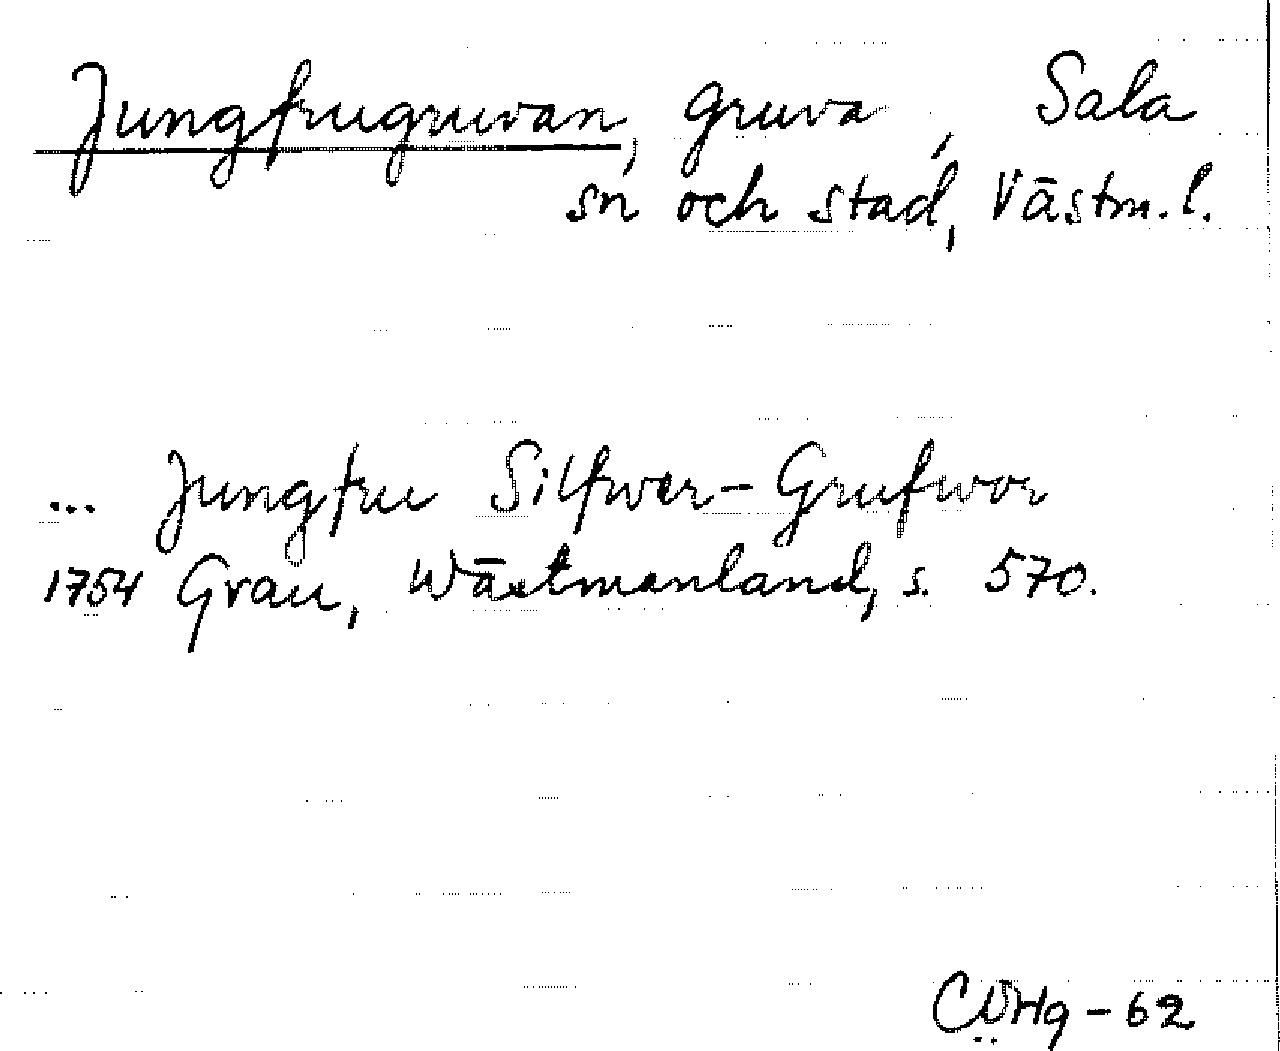 Jungfrugruvan, gruva, Sala
sn och stad, Västm. l.
... Jungfru Silfwer-Grufwor
1754 Grau, Wästmanland, s. 570.